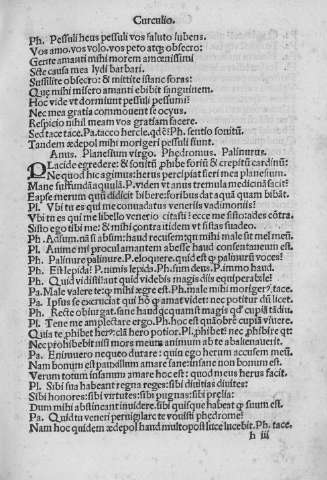 Curculio.
Ph. Pessuli heus pessuli vos saluto lubens.
Vos amo. vos volo. vos peto atq; obsecro:
Gerite amanti mihi morem amœnissimi
Sitę causa mea lydi barbari.
Sussilite obsecro: & mittite istanc foras:
Quę mihi misero amanti ebibit sanguinem.
Hoc vide vt dormiunt pessuli pessumi:
Nec mea gratia commouent se ocyus.
Respicio nihil meam vos gratiam facere.
Sed tace tace. Pa. tacco hercle. qđ ē: Ph. sentio sonitū.
Tandem ædepol mihi morigeri pessuli fiunt.
Anus. Planesium virgo. Phędromus. Palinurus.
PLacide egredere: & sonitū ꝓhibe foriū & crepitū cardinū:
Ne quod hic agimus: herus percipiat fieri mea planesium.
Mane suffundā aquulā. P. viden vt anus tremula medicinā facit:
Eapse merum quū didicit bibere: foribus dat aquā quam bibāt.
Pl. Vbi tu es qui me conuadatus veneriis vadimoniis:
Vbi tu es qui me libello venerio citasti: ecce me sisto: ades cōtra.
Sisto ego tibi me: & mihi cōtra itidem vt sistas suadeo.
Ph. Adsum. nā si absim: haud recusem: qn mihi male sit mel meū.
Pl. Anime mi procul amantem abesse haud consentaneum est.
Ph. Palinure palinure. P. eloquere. quid est qꝫ palinurū voces:
Ph. Est lepida: P. nimis lepida. Ph. sum deus. P. immo haud.
Ph. Quid vidisti aut quid videbis magis diis equiperabile:
Pa. Male valere te: qꝫ mihi ægre est. Ph. male mihi moriger: tace.
Pa. Ipsus se excruciat qui hō qꝫ amat videt: nec potitur dū licet.
Ph. Recte obiurgat. sane haud qcquam st magis qđ cupiā tādiu.
Pl. Tene me amplectare ergo. Ph. hoc est quāobrē cupiā viuere.
Quia te ꝓhibet her: clā hero potior. Pl. ꝓhibet: nec ꝓhibire qt:
Nec prohibebit nisi mors meum animum abs te abalienauerit.
Pa. Enimuero nequeo durare: quin ego herum accusem meū.
Nam bonum est pauxillum amare sane: insane non bonum est.
Verum totum insanum amare hoc est: quod meus herus facit.
Pl. Sibi sua habeant regna reges: sibi diuitias diuites:
Sibi honores: sibi virtutes: sibi pugnas: sibi prelia:
Dum mihi abstineant inuidere. sibi quisque habeat qꝫ suum est.
Pa. Quid tu veneri peruigilare te vouisti phędrome:
Nam hoc quidem ædepol haud multo post luce lucebit. Ph. tace.
h iii